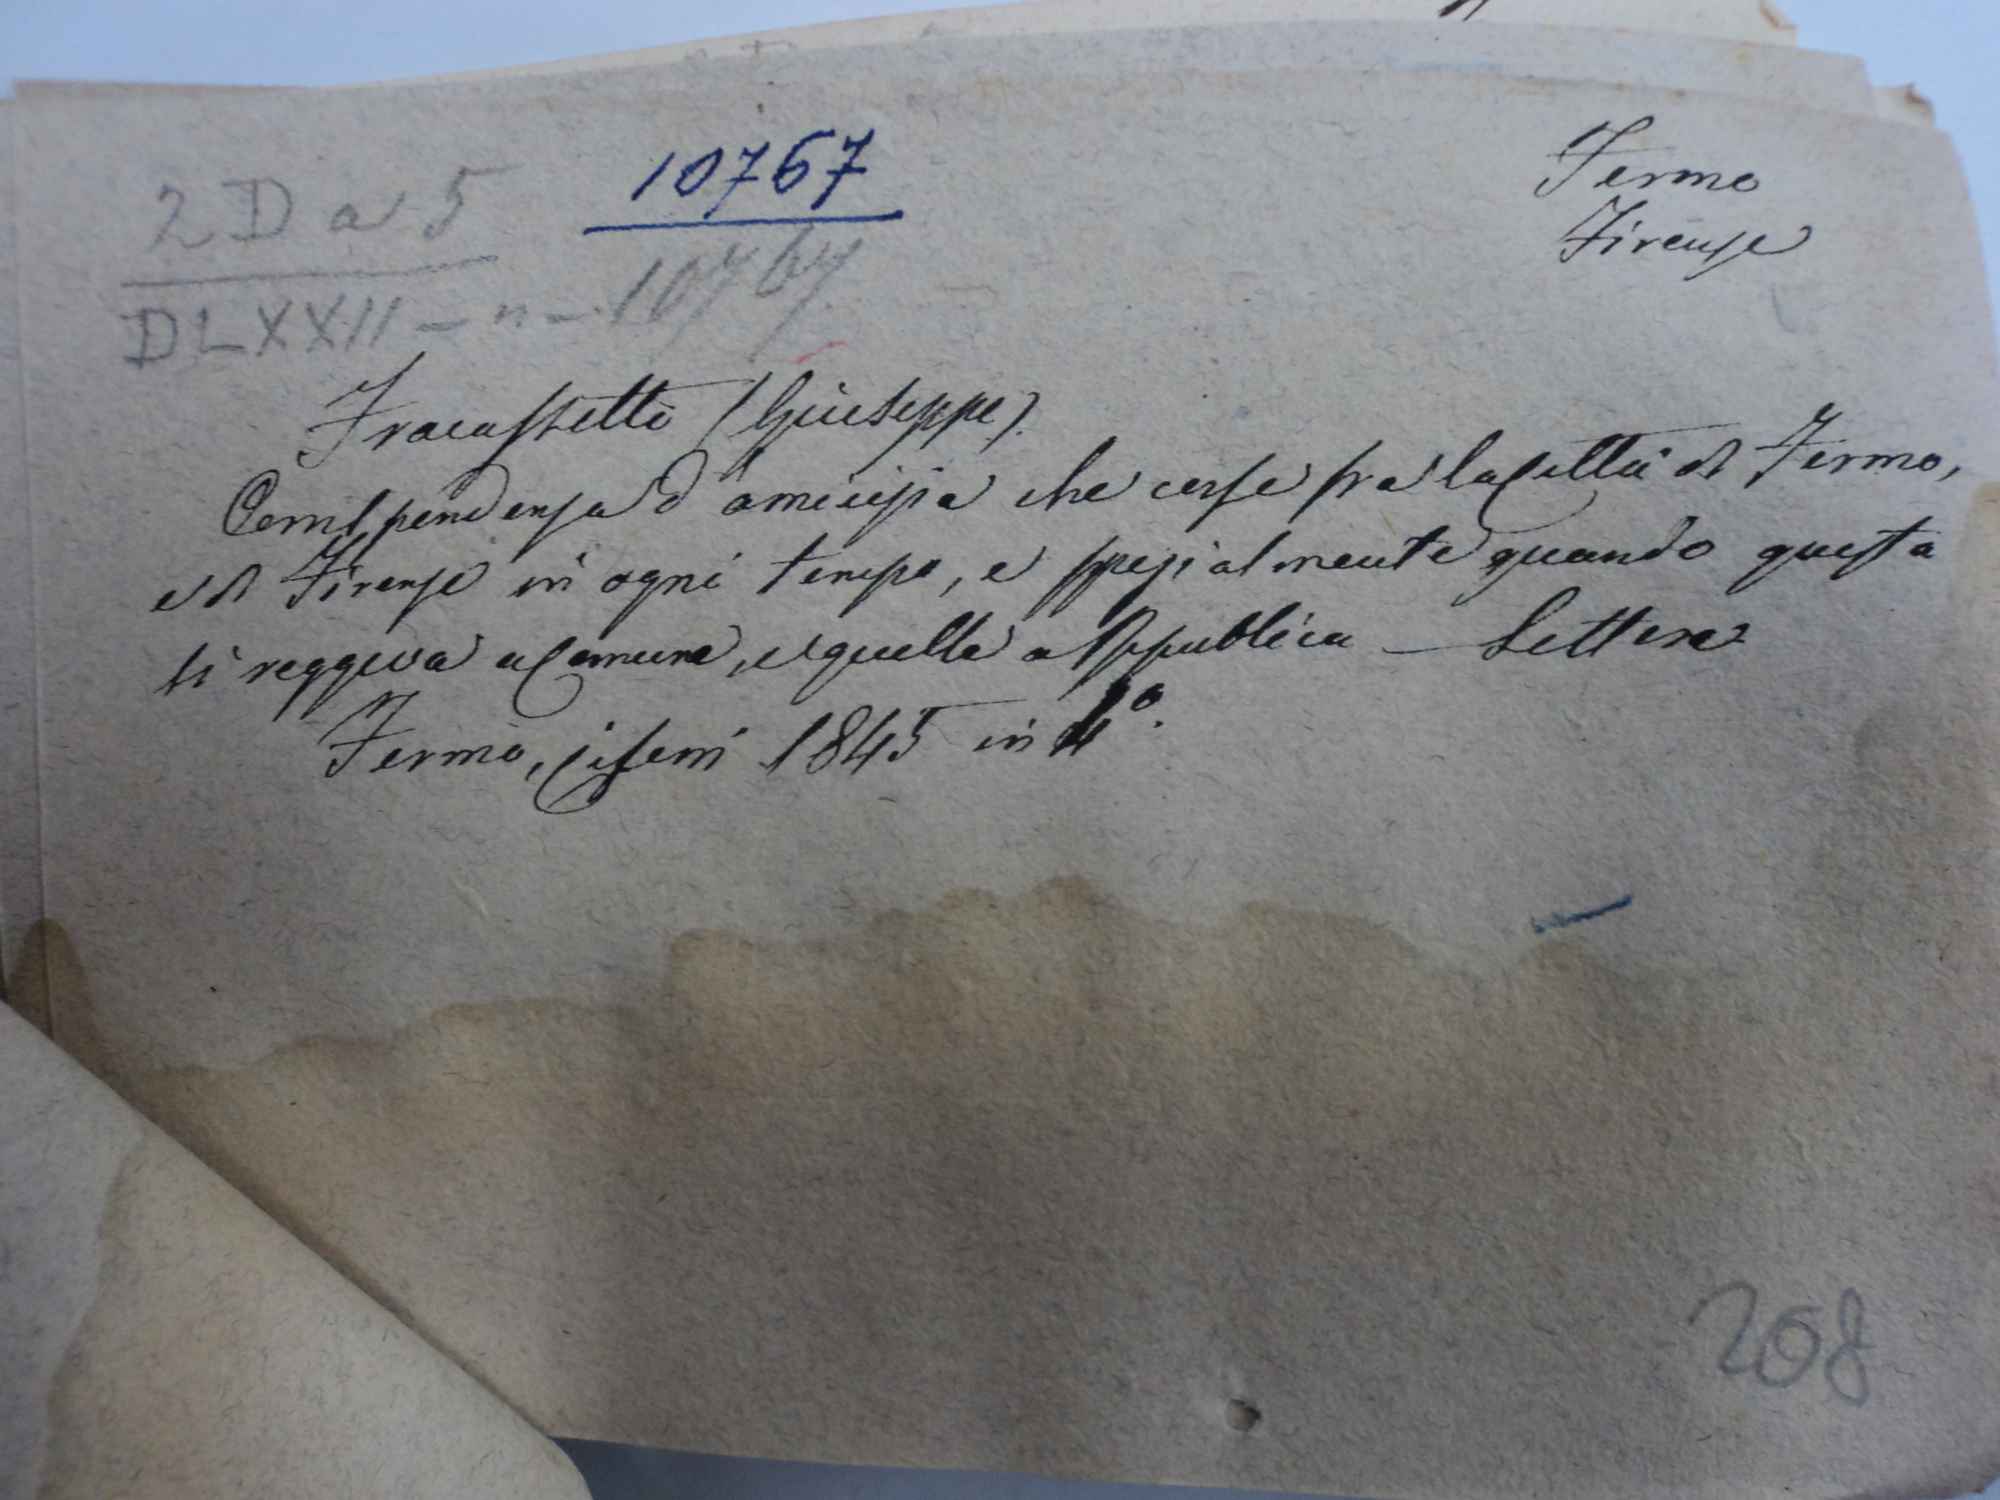 10767
2 D a 5
DLXXII - n - 10767
Fermo
Firenze
Fracassetti (Giuseppe).
Corrispondenza d'amicizia che corse fra la Città di Fermo,
e di Firenze in ogni tempo, e spezialmente quando questa
si reggeva a Comune, e quella a Repubblica — Lettera
Fermo, Ciferri 1845 in 4°.
208